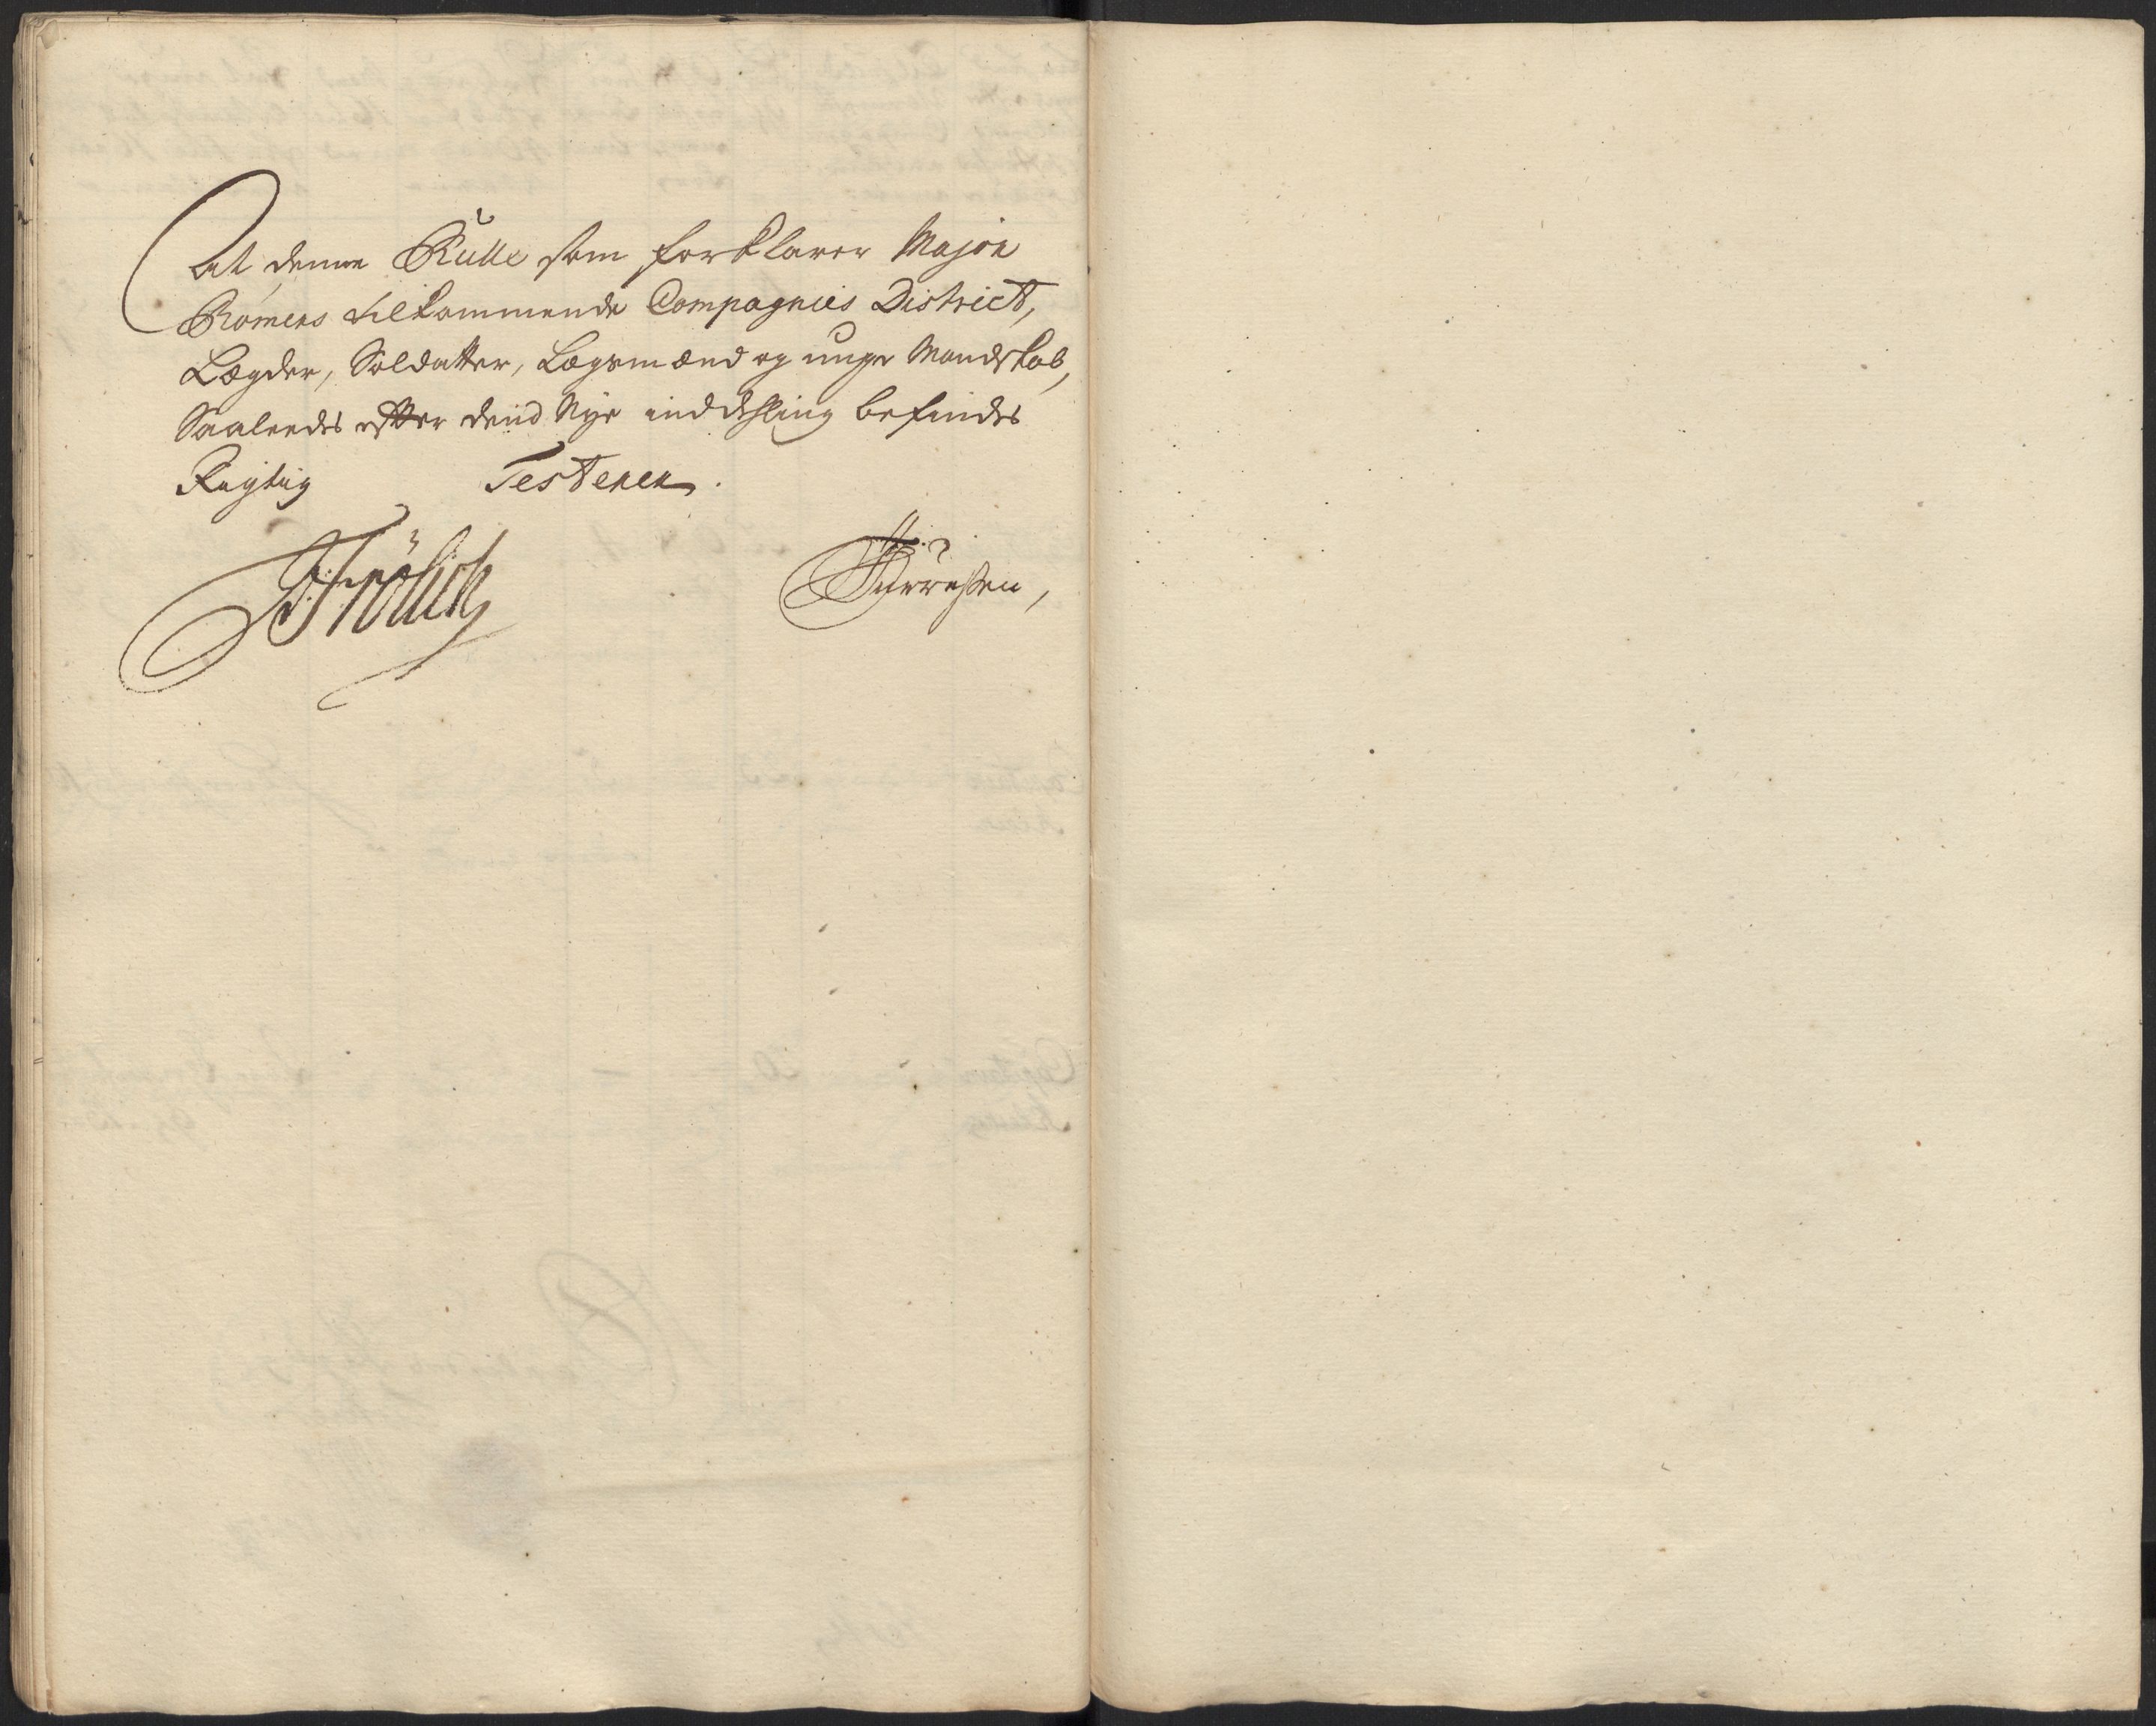 At denne Rulle som forklarer Major
Rømers tilkommende Compagnies District,
Lægder, Soldatter, Lægsmænd og unge Mandskab,
Saaleedes efter dend Nye inddehling befindes
Rigtig Testerer
Frölich